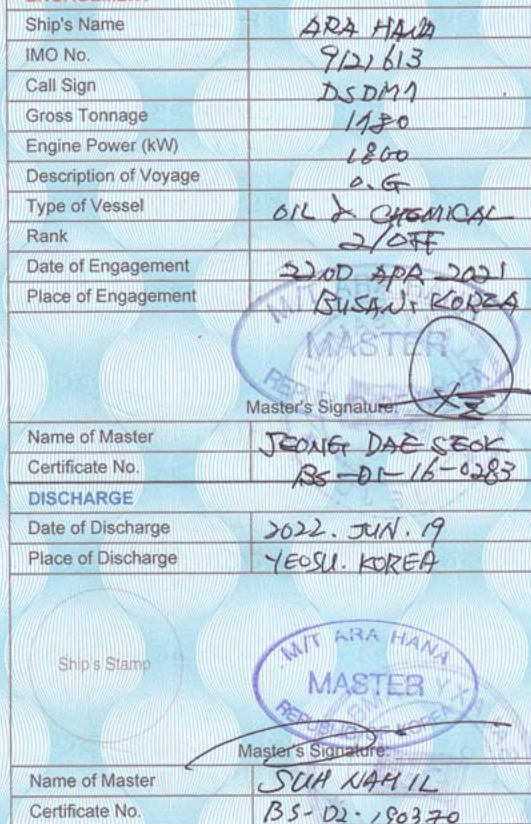 ENGAGEMENT
Ship's Name ARA HANA
IMO No. 9121613
Call Sign DSDM7
Gross Tonnage 1980
Engine Power (kW) 1800
Description of Voyage O.G
Type of Vessel OIL & CHEMICAL
Rank 2/OFF
Date of Engagement 22ND APR 2021
Place of Engagement BUSAN, KOREA
MASTER
Master's Signature:
Name of Master JEONG DAE SEOK
Certificate No. BS-01-16-0283
DISCHARGE
Date of Discharge 2022. JUN. 19
Place of Discharge YEOSU. KOREA
M/T ARA HANA
Ship's Stamp
MASTER
REPUBLIC OF KOREA
Master's Signature:
Name of Master SUH NAM IL
Certificate No. BS-02-190370